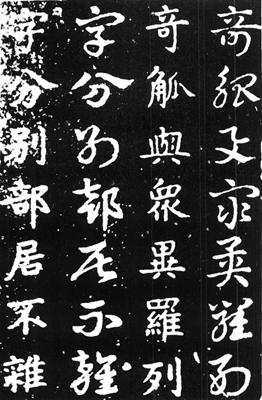 奇觚與眾異羅列
奇觚與眾異羅列
字分別部居不雜
字分別部居不雜